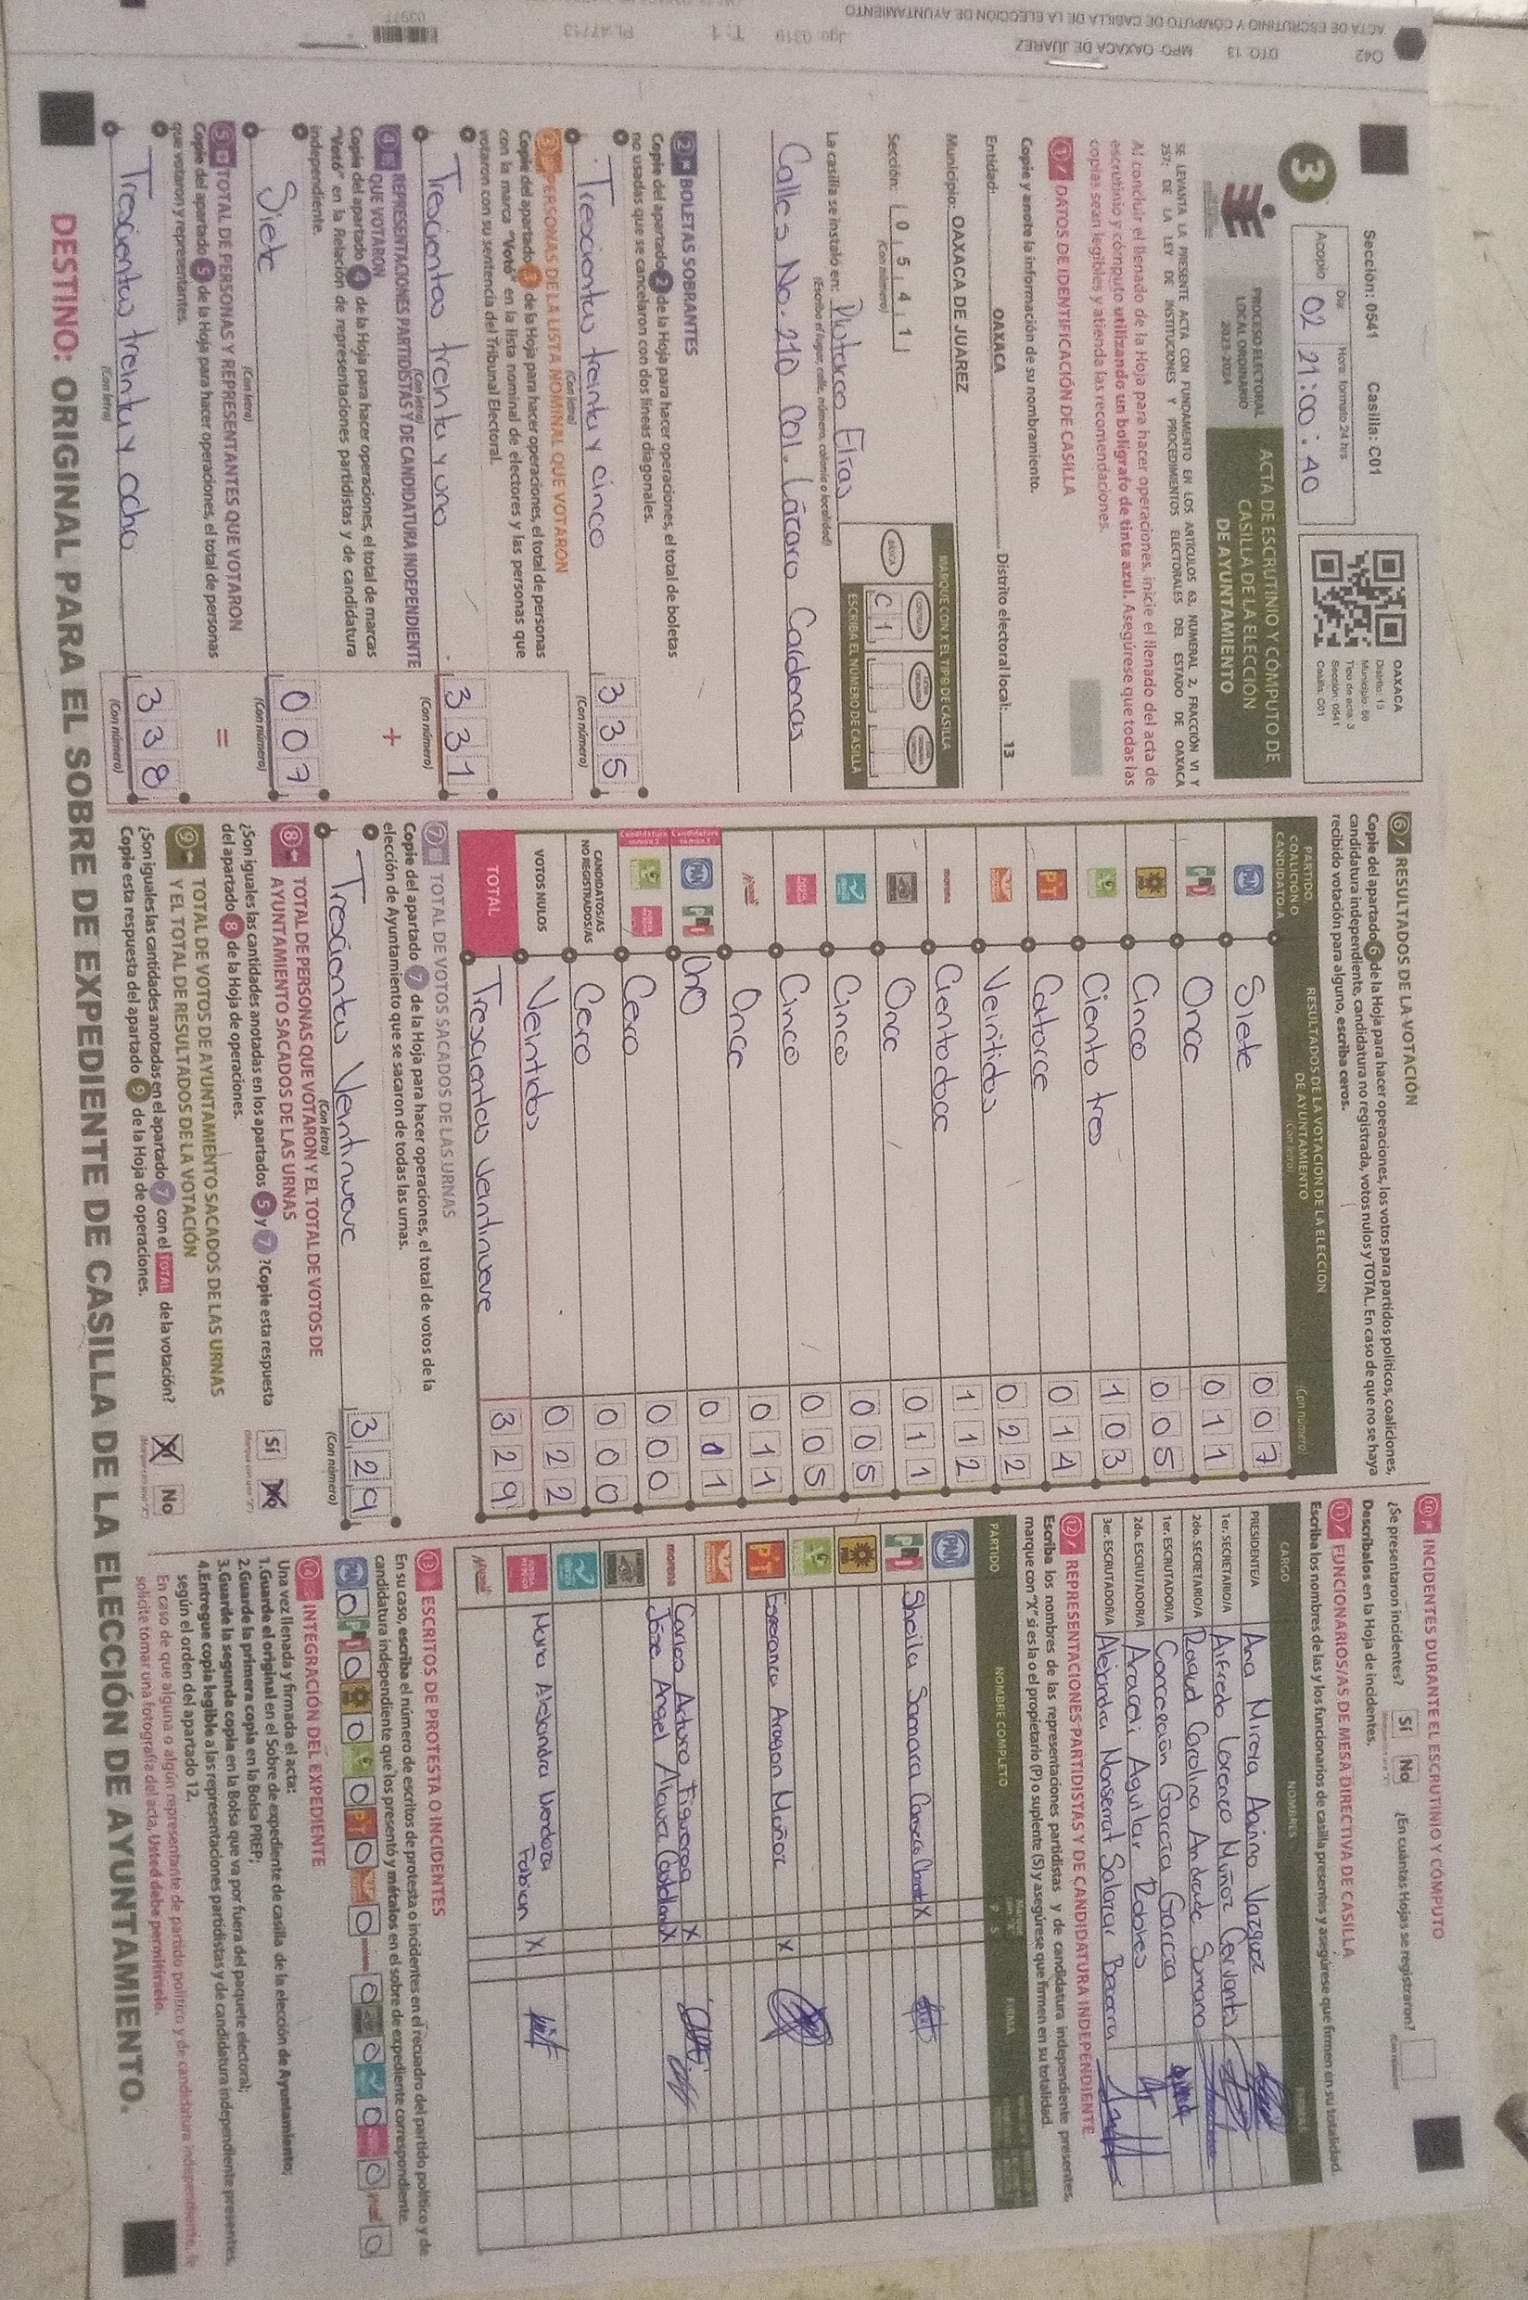 042 DTO. 13 MPO. OAXACA DE JUAREZ
ACTA DE ESCRUTINIO Y COMPUTO DE CASILLA DE LA ELECCION DE AYUNTAMIENTO
T: 1
03977
Sección: 0541 Casilla: C01
Día Hora: formato 24 hrs
Acopio 02 21:00:40
OAXACA
Distrito: 13
Municipio: 60
Tipo de acta: 3
Sección: 0541
Casilla: C01
3
PROCESO ELECTORAL
LOCAL ORDINARIO
2023-2024
ACTA DE ESCRUTINIO Y CÓMPUTO DE
CASILLA DE LA ELECCIÓN
DE AYUNTAMIENTO
SE LEVANTA LA PRESENTE ACTA CON FUNDAMENTO EN LOS ARTÍCULOS 63, NUMERAL 2, FRACCIÓN VI Y
257; DE LA LEY DE INSTITUCIONES Y PROCEDIMIENTOS ELECTORALES DEL ESTADO DE OAXACA
Al concluir el llenado de la Hoja para hacer operaciones, inicie el llenado del acta de
escrutinio y cómputo utilizando un bolígrafo de tinta azul. Asegúrese que todas las
copias sean legibles y atienda las recomendaciones.
1 DATOS DE IDENTIFICACIÓN DE CASILLA
Copie y anote la información de su nombramiento.
Entidad: OAXACA Distrito electoral local: 13
Municipio: OAXACA DE JUÁREZ
MARQUE CON X EL TIPO DE CASILLA
Sección: 0 5 4 1
(Con número)
BÁSICA
C 1
ESCRIBA EL NÚMERO DE CASILLA
La casilla se instaló en: Plutarco Elías
(Escriba el lugar, calle, número, colonia o localidad)
Calles No. 210 Col. Lázaro Cardenas
2 BOLETAS SOBRANTES
Copie del apartado 2 de la Hoja para hacer operaciones, el total de boletas
no usadas que se cancelaron con dos líneas diagonales.
Trescientos treinta y cinco 335
(Con letra) (Con número)
3 PERSONAS DE LA LISTA NOMINAL QUE VOTARON
Copie del apartado 3 de la Hoja para hacer operaciones, el total de personas
con la marca "Votó" en la lista nominal de electores y las personas que
votaron con su sentencia del Tribunal Electoral.
Trescientos treinta y uno 331
(Con letra) (Con número)
4 REPRESENTACIONES PARTIDISTAS Y DE CANDIDATURA INDEPENDIENTE
QUE VOTARON
+
Copie del apartado 4 de la Hoja para hacer operaciones, el total de marcas
"Votó" en la Relación de representaciones partidistas y de candidatura
independiente.
Siete 007
(Con letra) (Con número)
5 TOTAL DE PERSONAS Y REPRESENTANTES QUE VOTARON
=
Copie del apartado 5 de la Hoja para hacer operaciones, el total de personas
que votaron y representantes.
Trescientos treinta y ocho 338
(Con letra) (Con número)
6 RESULTADOS DE LA VOTACIÓN
Copie del apartado 6 de la Hoja para hacer operaciones, los votos para partidos políticos, coaliciones,
candidatura independiente, candidatura no registrada, votos nulos y TOTAL. En caso de que no se haya
recibido votación para alguno, escriba ceros.
PARTIDO,
COALICIÓN O
CANDIDATO/A
RESULTADOS DE LA VOTACIÓN DE LA ELECCIÓN
DE AYUNTAMIENTO
(Con letra)
(Con número)
PAN Siete 007
PRI Once 011
PRD Cinco 005
Ciento tres 103
PT Catorce 014
Veintidos 022
morena Ciento doce 112
Once 011
Cinco 005
Cinco 005
Once 011
PAN PRI Uno 001
Cero 000
CANDIDATOS/AS
NO REGISTRADOS/AS Cero 000
VOTOS NULOS Veintidos 022
TOTAL Trescientos Veintinueve 329
7 TOTAL DE VOTOS SACADOS DE LAS URNAS
Copie del apartado 7 de la Hoja para hacer operaciones, el total de votos de la
elección de Ayuntamiento que se sacaron de todas las urnas.
Trescientos Veintinueve 329
(Con letra) (Con número)
8 TOTAL DE PERSONAS QUE VOTARON Y EL TOTAL DE VOTOS DE
AYUNTAMIENTO SACADOS DE LAS URNAS
¿Son iguales las cantidades anotadas en los apartados 5 y 7 ? Copie esta respuesta
del apartado 8 de la Hoja de operaciones.
Sí
9 TOTAL DE VOTOS DE AYUNTAMIENTO SACADOS DE LAS URNAS
Y EL TOTAL DE RESULTADOS DE LA VOTACIÓN
¿Son iguales las cantidades anotadas en el apartado 7 con el TOTAL de la votación?
Copie esta respuesta del apartado 9 de la Hoja de operaciones.
No
10 INCIDENTES DURANTE EL ESCRUTINIO Y CÓMPUTO
¿Se presentaron incidentes? Sí No ¿En cuántas Hojas se registraron?
Descríbalos en la Hoja de incidentes.
11 FUNCIONARIOS/AS DE MESA DIRECTIVA DE CASILLA
Escriba los nombres de las y los funcionarios de casilla presentes y asegúrese que firmen en su totalidad.
CARGO NOMBRES
PRESIDENTE/A Ana Mireya Aquino Vazquez
1er. SECRETARIO/A Alfredo Lorenzo Muñoz Cervantes
2do. SECRETARIO/A Raquel Carolina Andrade Soriano
1er. ESCRUTADOR/A Concepción García García
2do. ESCRUTADOR/A Araceli Aguilar Dolores
3er. ESCRUTADOR/A Alejandra Monserrat Salazar Becerra
12 REPRESENTACIONES PARTIDISTAS Y DE CANDIDATURA INDEPENDIENTE
Escriba los nombres de las representaciones partidistas y de candidatura independiente presentes,
marque con "X" si es la o el propietario (P) o suplente (S) y asegúrese que firmen en su totalidad.
PARTIDO NOMBRE COMPLETO P S FIRMA
PAN
PRI Sheila Samara X
PRD
PT Esperanza Aragon Muñoz X
morena Carlos Arturo Figueroa X
Jose Angel X
Nora Alejandra Mendoza
Fabian X
13 ESCRITOS DE PROTESTA O INCIDENTES
En su caso, escriba el número de escritos de protesta o incidentes en el recuadro del partido político y de
candidatura independiente que los presentó y métalos en el sobre de expediente correspondiente.
PAN 0 PRI 0 0 0 PT 0 0 0 0 0 0 0
14 INTEGRACIÓN DEL EXPEDIENTE
Una vez llenada y firmada el acta:
1.Guarde el original en el Sobre de expediente de casilla de la elección de Ayuntamiento;
2.Guarde la primera copia en la Bolsa PREP;
3.Guarde la segunda copia en la Bolsa que va por fuera del paquete electoral;
4.Entregue copia legible a las representaciones partidistas y de candidatura independiente presentes,
según el orden del apartado 12.
En caso de que alguna o algún representante de partido político y de candidatura independiente, le
solicite tomar una fotografía del acta, Usted debe permitírselo.
DESTINO: ORIGINAL PARA EL SOBRE DE EXPEDIENTE DE CASILLA DE LA ELECCIÓN DE AYUNTAMIENTO.